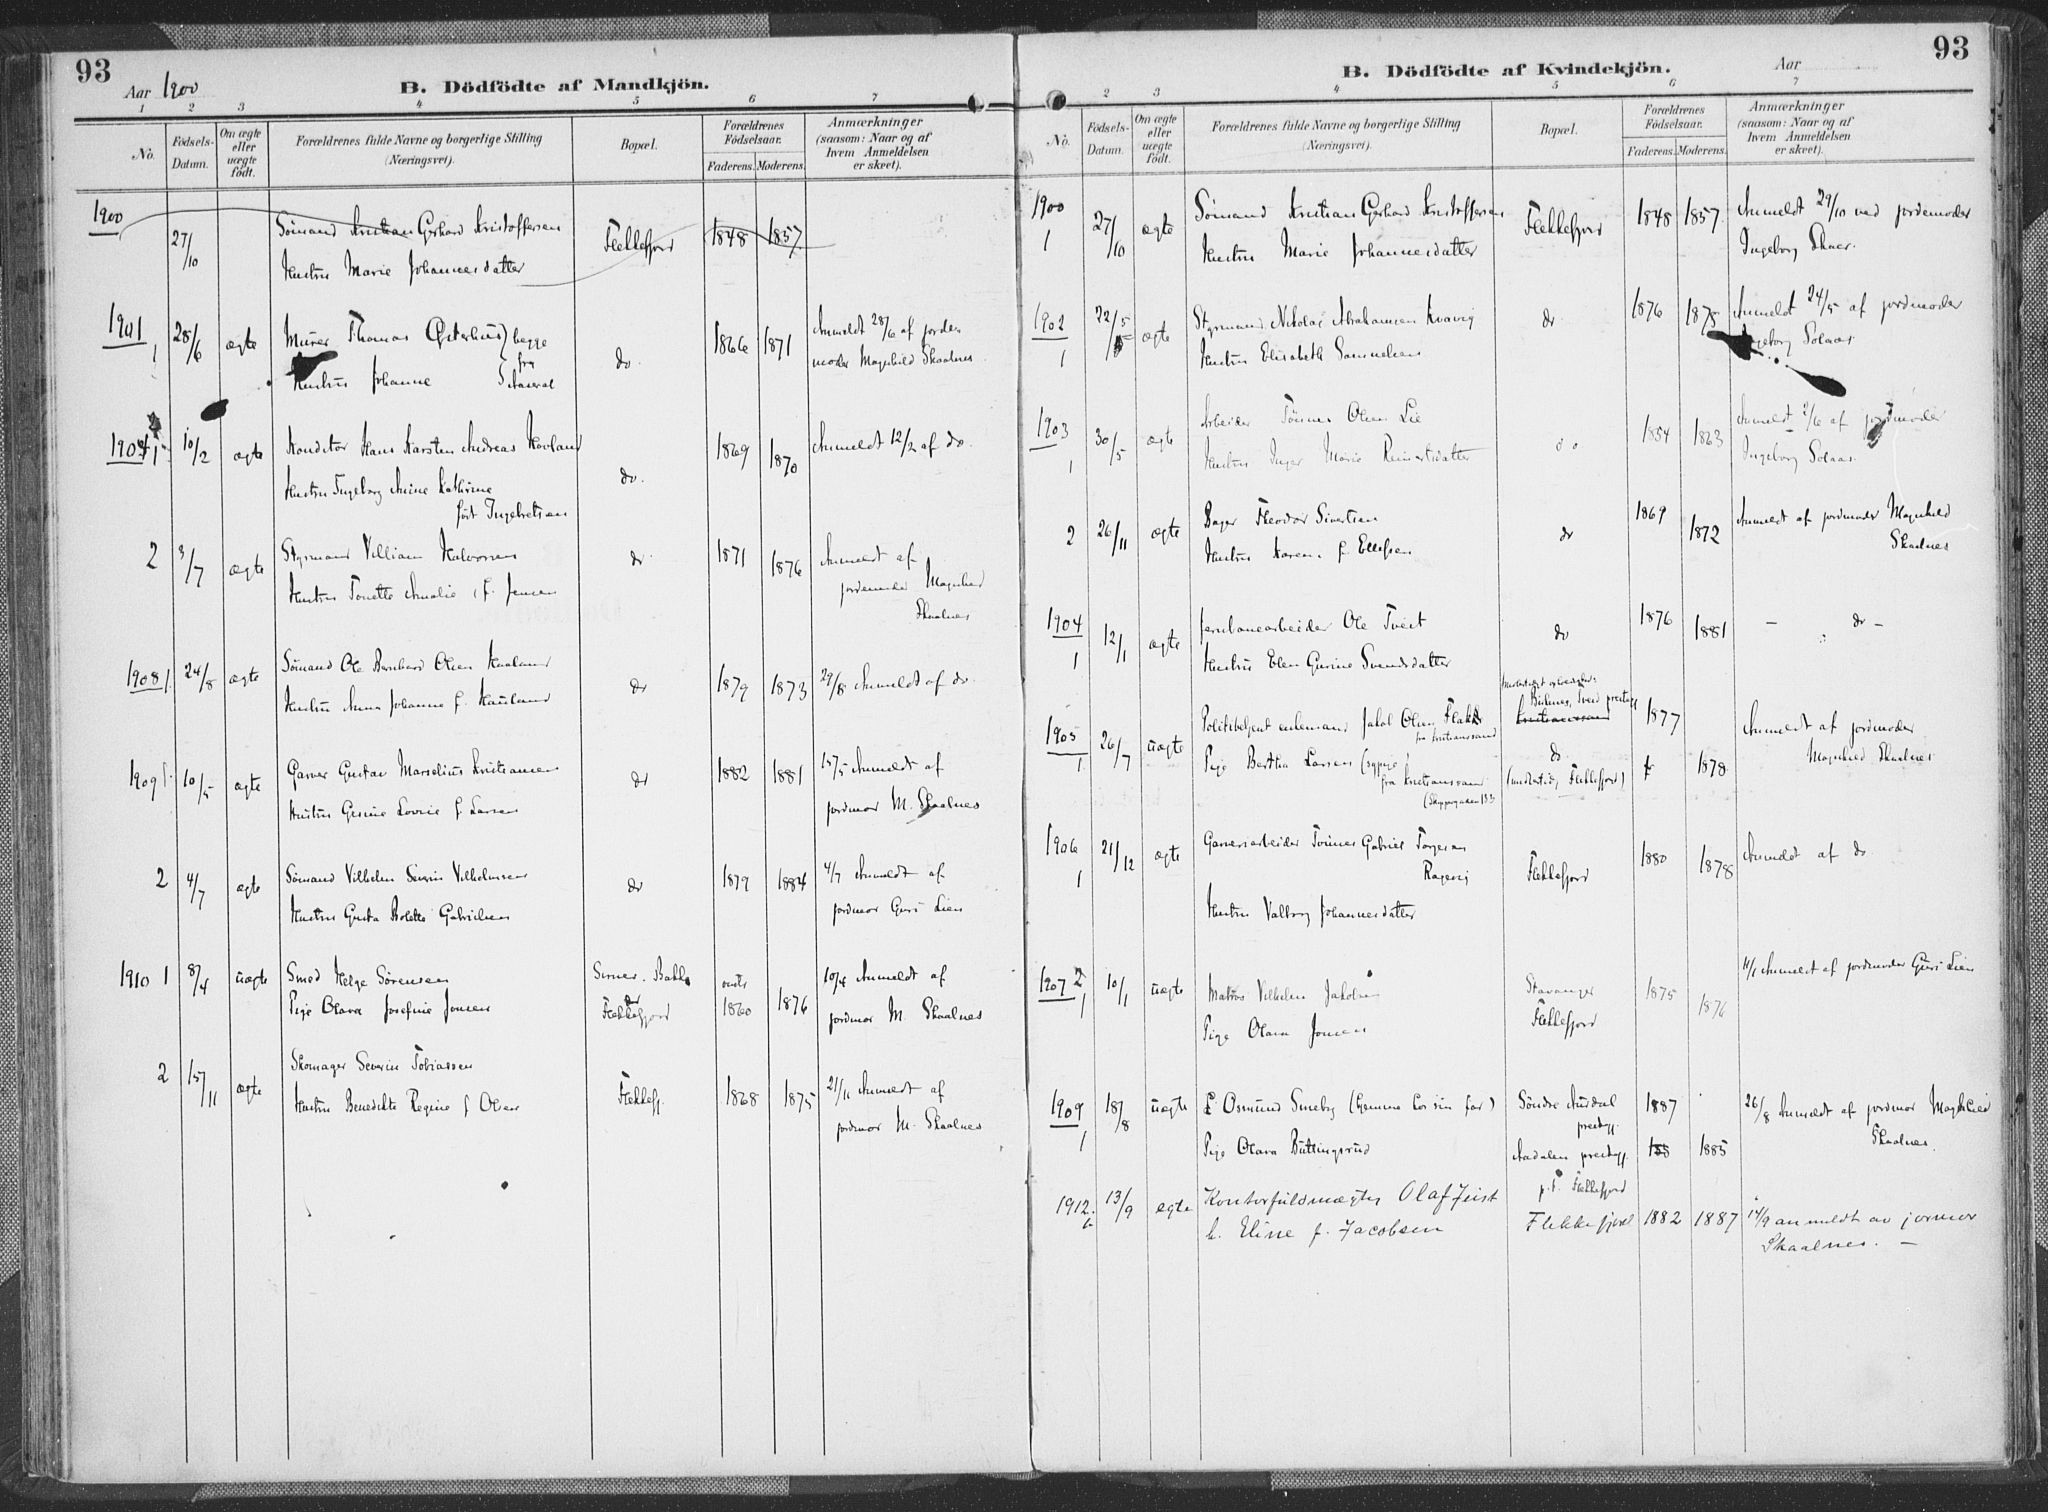 93
Aar 1900
B. Dödfödte af Mandkjön.
1 2 3 4 5 6 7
No.
Födsels-Datum.
Om ægte eller uægte födt.
Forældrenes fulde Navne og borgerlige Stilling
(Næringsvei).
Bopæl.
Forældrenes Födselsaar.
Faderens. Moderens.
Anmærkninger
(saasom: Naar og af
hvem Anmeldelsen
er skeet).
1900
27/10 Sömand Kristian Gerhard Kristoffersen Flekkefjord 1848 1857
Hustru Marie Johannesdatter
1901
1 28/6 ægte Murer Thomas Osterhus } begge fra Aaseral do. 1866 1871 Anmeldt 28/6 af jorde-
Hustru Johanne moder Magnhild Skaalnes
1904
1 10/2 ægte Konditor Hans Karsten Andreas Hovland do. 1869 1870 Anmeldt 12/2 af do.
Hustru Ingeborg Anine Kathrine
födt Ingebretsen
2 3/7 ægte Styrmand Villiam Halvorsen do 1871 1876 Anmeldt af
Hustru Tonette Amalie f. Jensen jordemoder Magnhild
Skaalnes
1908 1. 24/8 ægte Sömand Ole Bernhard Olsen Haaland do 1879 1873 29/8 Anmeldt af do.
Hustru Anna Johanne f. Hauland
1909 1. 10/5 ægte Garver Gustav Marselius Kristiansen do 1882 1881 15/5 Anmeldt af
Hustru Gesine Lovise f. Larsen jordmor M. Skaalnes
2 4/7 ægte Sömand Vilhelm Severin Vilhelmsen do 1879 1884 4/7 Anmeldt af
Hustru Gusta Bolette Gabrielsen jordmor Guri Lien
1910 1 8/4 uægte Smed Helge Sörensen Bakke 10/4 Anmeldt af
Pige Olava Josefine Jonsen Flekkefjord 1860 1876 jordmor M. Skaalnes
2 15/11 ægte Skomager Severin Tobiassen Flekkefj. 1868 1875 21/11 Anmeldt af
Hustru Benedikte Regine f. Olsen jordmor M. Skaalnes
93
B. Dödfödte af Kvindekjön.
Aar
2 3 4 5 6 7
No.
Födsels-Datum.
Om ægte eller uægte födt.
Forældrenes fulde Navne og borgerlige Stilling
(Næringsvei).
Bopæl.
Forældrenes Födselsaar.
Faderens. Moderens.
Anmærkninger
(saasom: Naar og af
hvem Anmeldelsen
er skeet).
1900
1 27/10 ægte Sömand Kristian Gerhard Kristoffersen Flekkefjord 1848 1857 Anmeldt 29/10 ved jordemoder
Hustru Marie Johannesdatter Ingeborg Skaar.
1902
1 22/5 ægte Styrmand Nikolai Abrahamsen Kvavig do 1876 1875 Anmeldt 24/5 af jordmoder
Hustru Elisabeth Samuelsen Ingeborg Solaas
1903
1 30/5 ægte Arbeider Tönnes Olsen Lie do 1854 1863 Anmeldt 2/6 af jordmoder
Hustru Inger Marie Reinertsdatter Ingeborg Solaas.
2 26/11 ægte Bager Theodor Sivertsen do 1869 1872 Anmeldt af jordmoder Magnhild
Hustru Karen f. Ellefsen Skaalnes
1904
1 12/1 ægte Jernbanearbeider Ole Tveit do 1876 1881 – do –
Hustru Elen Gurine Svendsdatter
1905
1 26/7 uægte Politibetjent enkemand Jakob Olsen Flakke 1877 Anmeldt af jordmoder
fra Kristianssand
Pige Bertha Larsen (sypige) do 1878 Magnhild Skaalnes
fra Kristianssand (midlertid. Flekkefjord)
(Skippergaden 133
1906
1 21/12 ægte Garveriarbeider Tönnes Gabriel Torgersen Flekkefjord 1880 1878 Anmeldt af do
Rogevig
Hustru Valborg Johannesdatter
1907
1 10/1 uægte Matros Vilhelm Jakobsen Stavanger 1875 1876 11/1 Anmeldt af jordmoder Guri Lien
Pige Olava Jonsen Flekkefjord
1909
1 18/8 uægte Osmund Smeby Söndre Aurdal prestegj. 1887 26/8 Anmeldt af jordmor Magnhild
Pige Olava Buttingsrud Aadalen prestegj. 1885 Skaalnes.
p.t. Flekkefjord
1912. 13/9 ægte Kontorfuldmægtig Olaf Feist
h. Eline f. Jacobsen Flekkefjord 1882 1887 14/9 anmeldt av jormor
Skaalnes. –